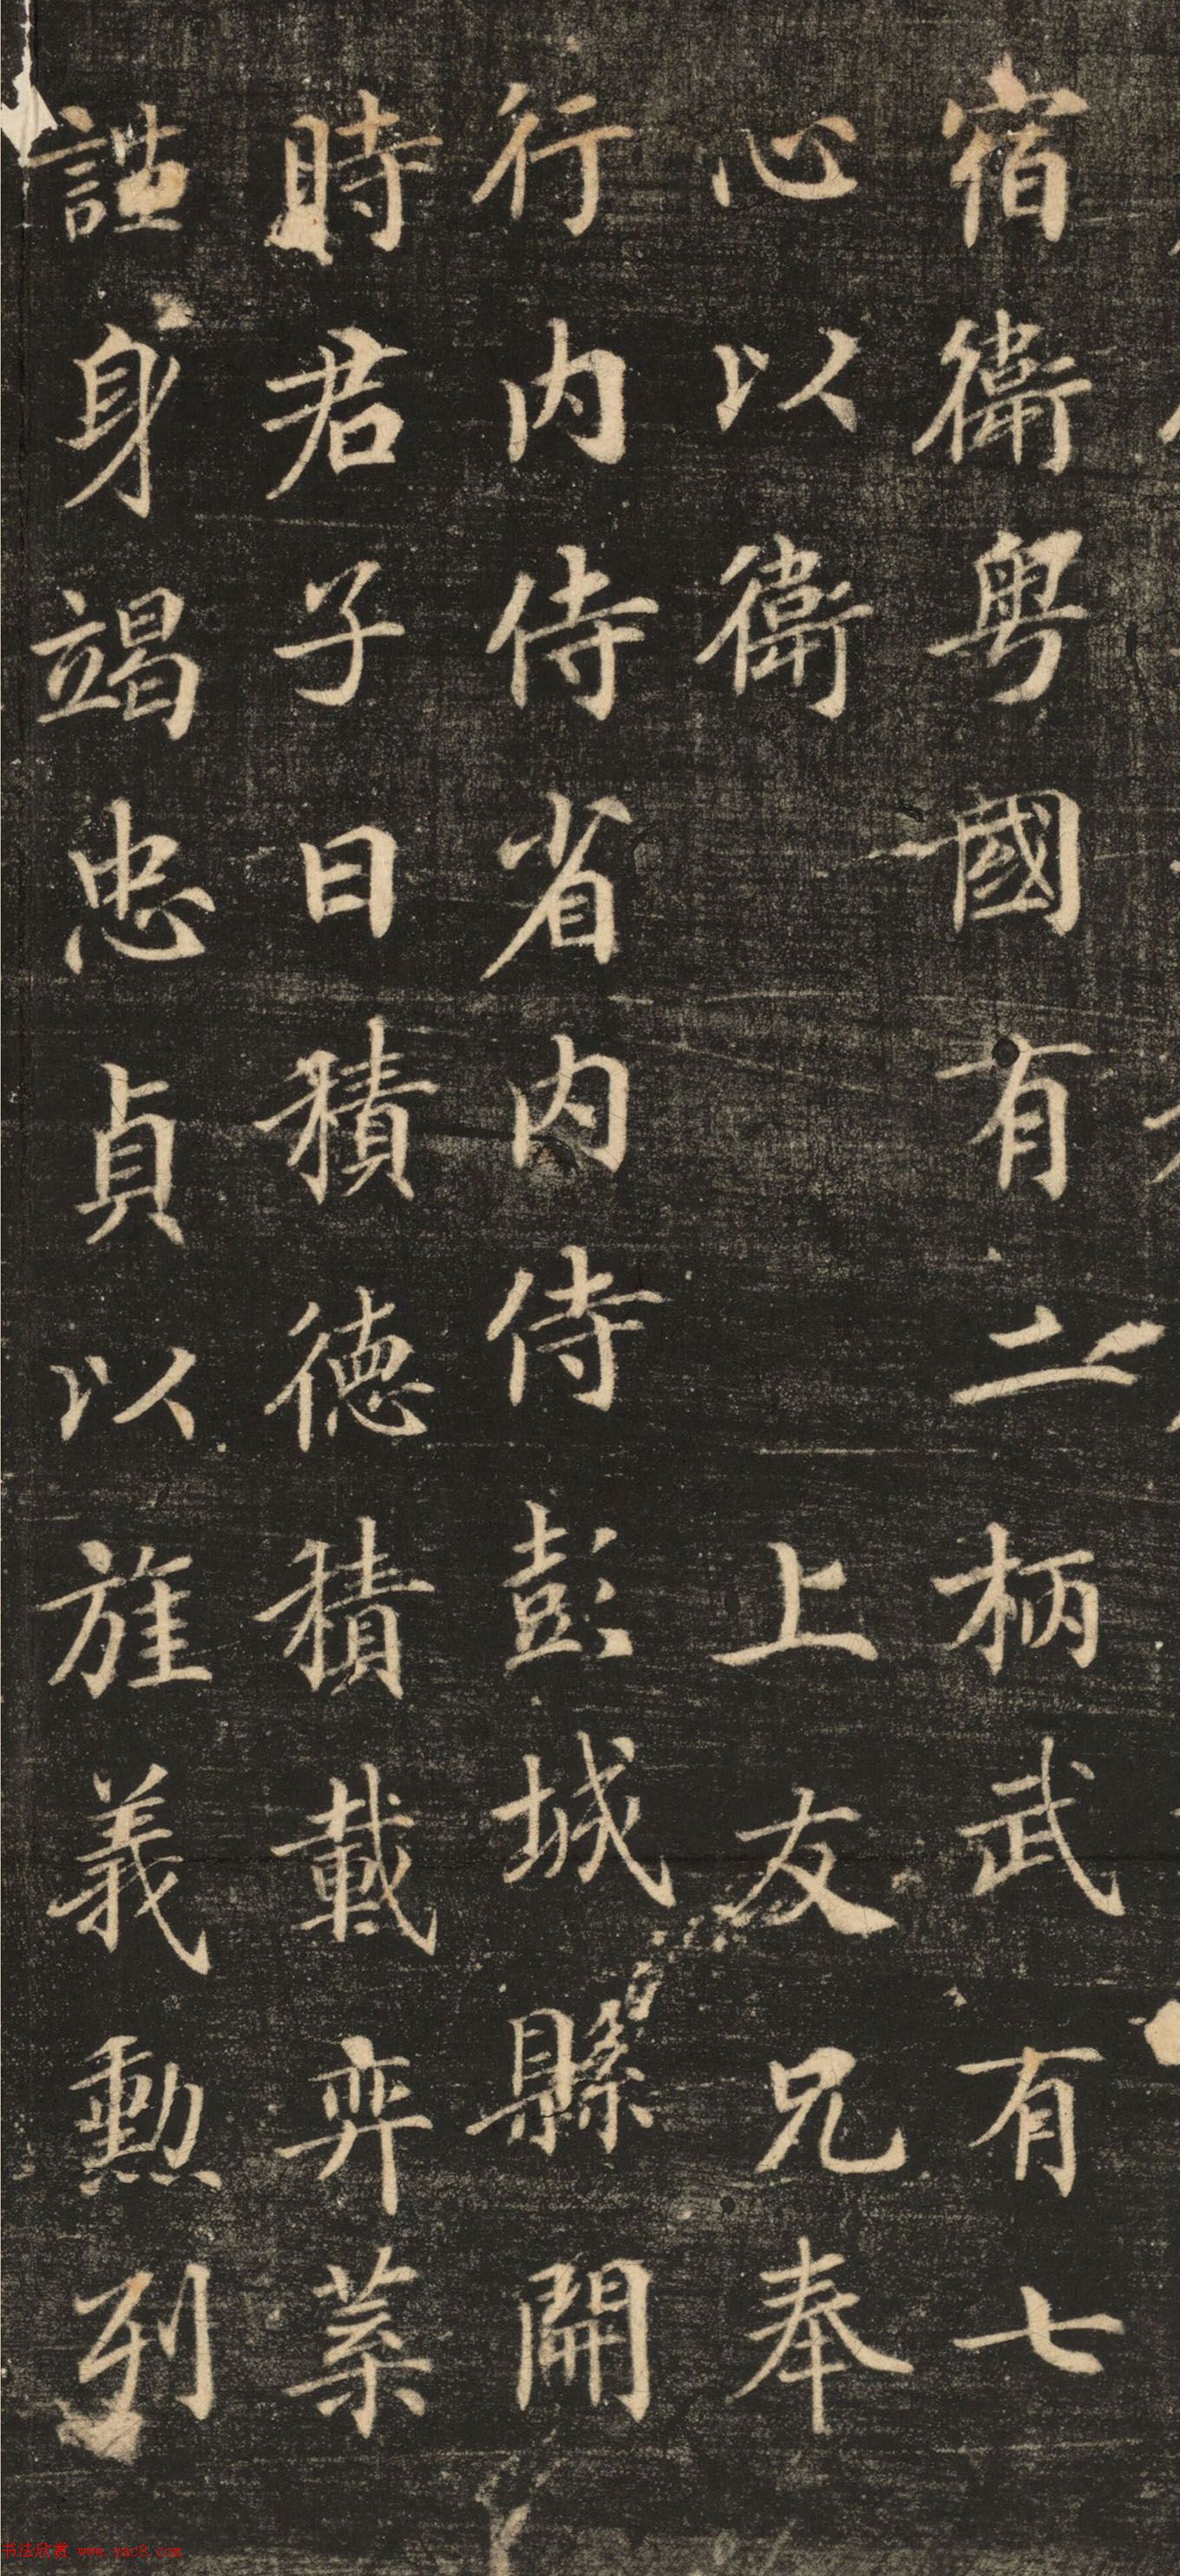 宿衛粵國有二柄武有七
心以衛上友兄奉
行内侍省内侍彭城縣開
時君子曰積德積載弈葉
謹身竭忠貞以旌義勳列
书法欣赏 www.yac8.com